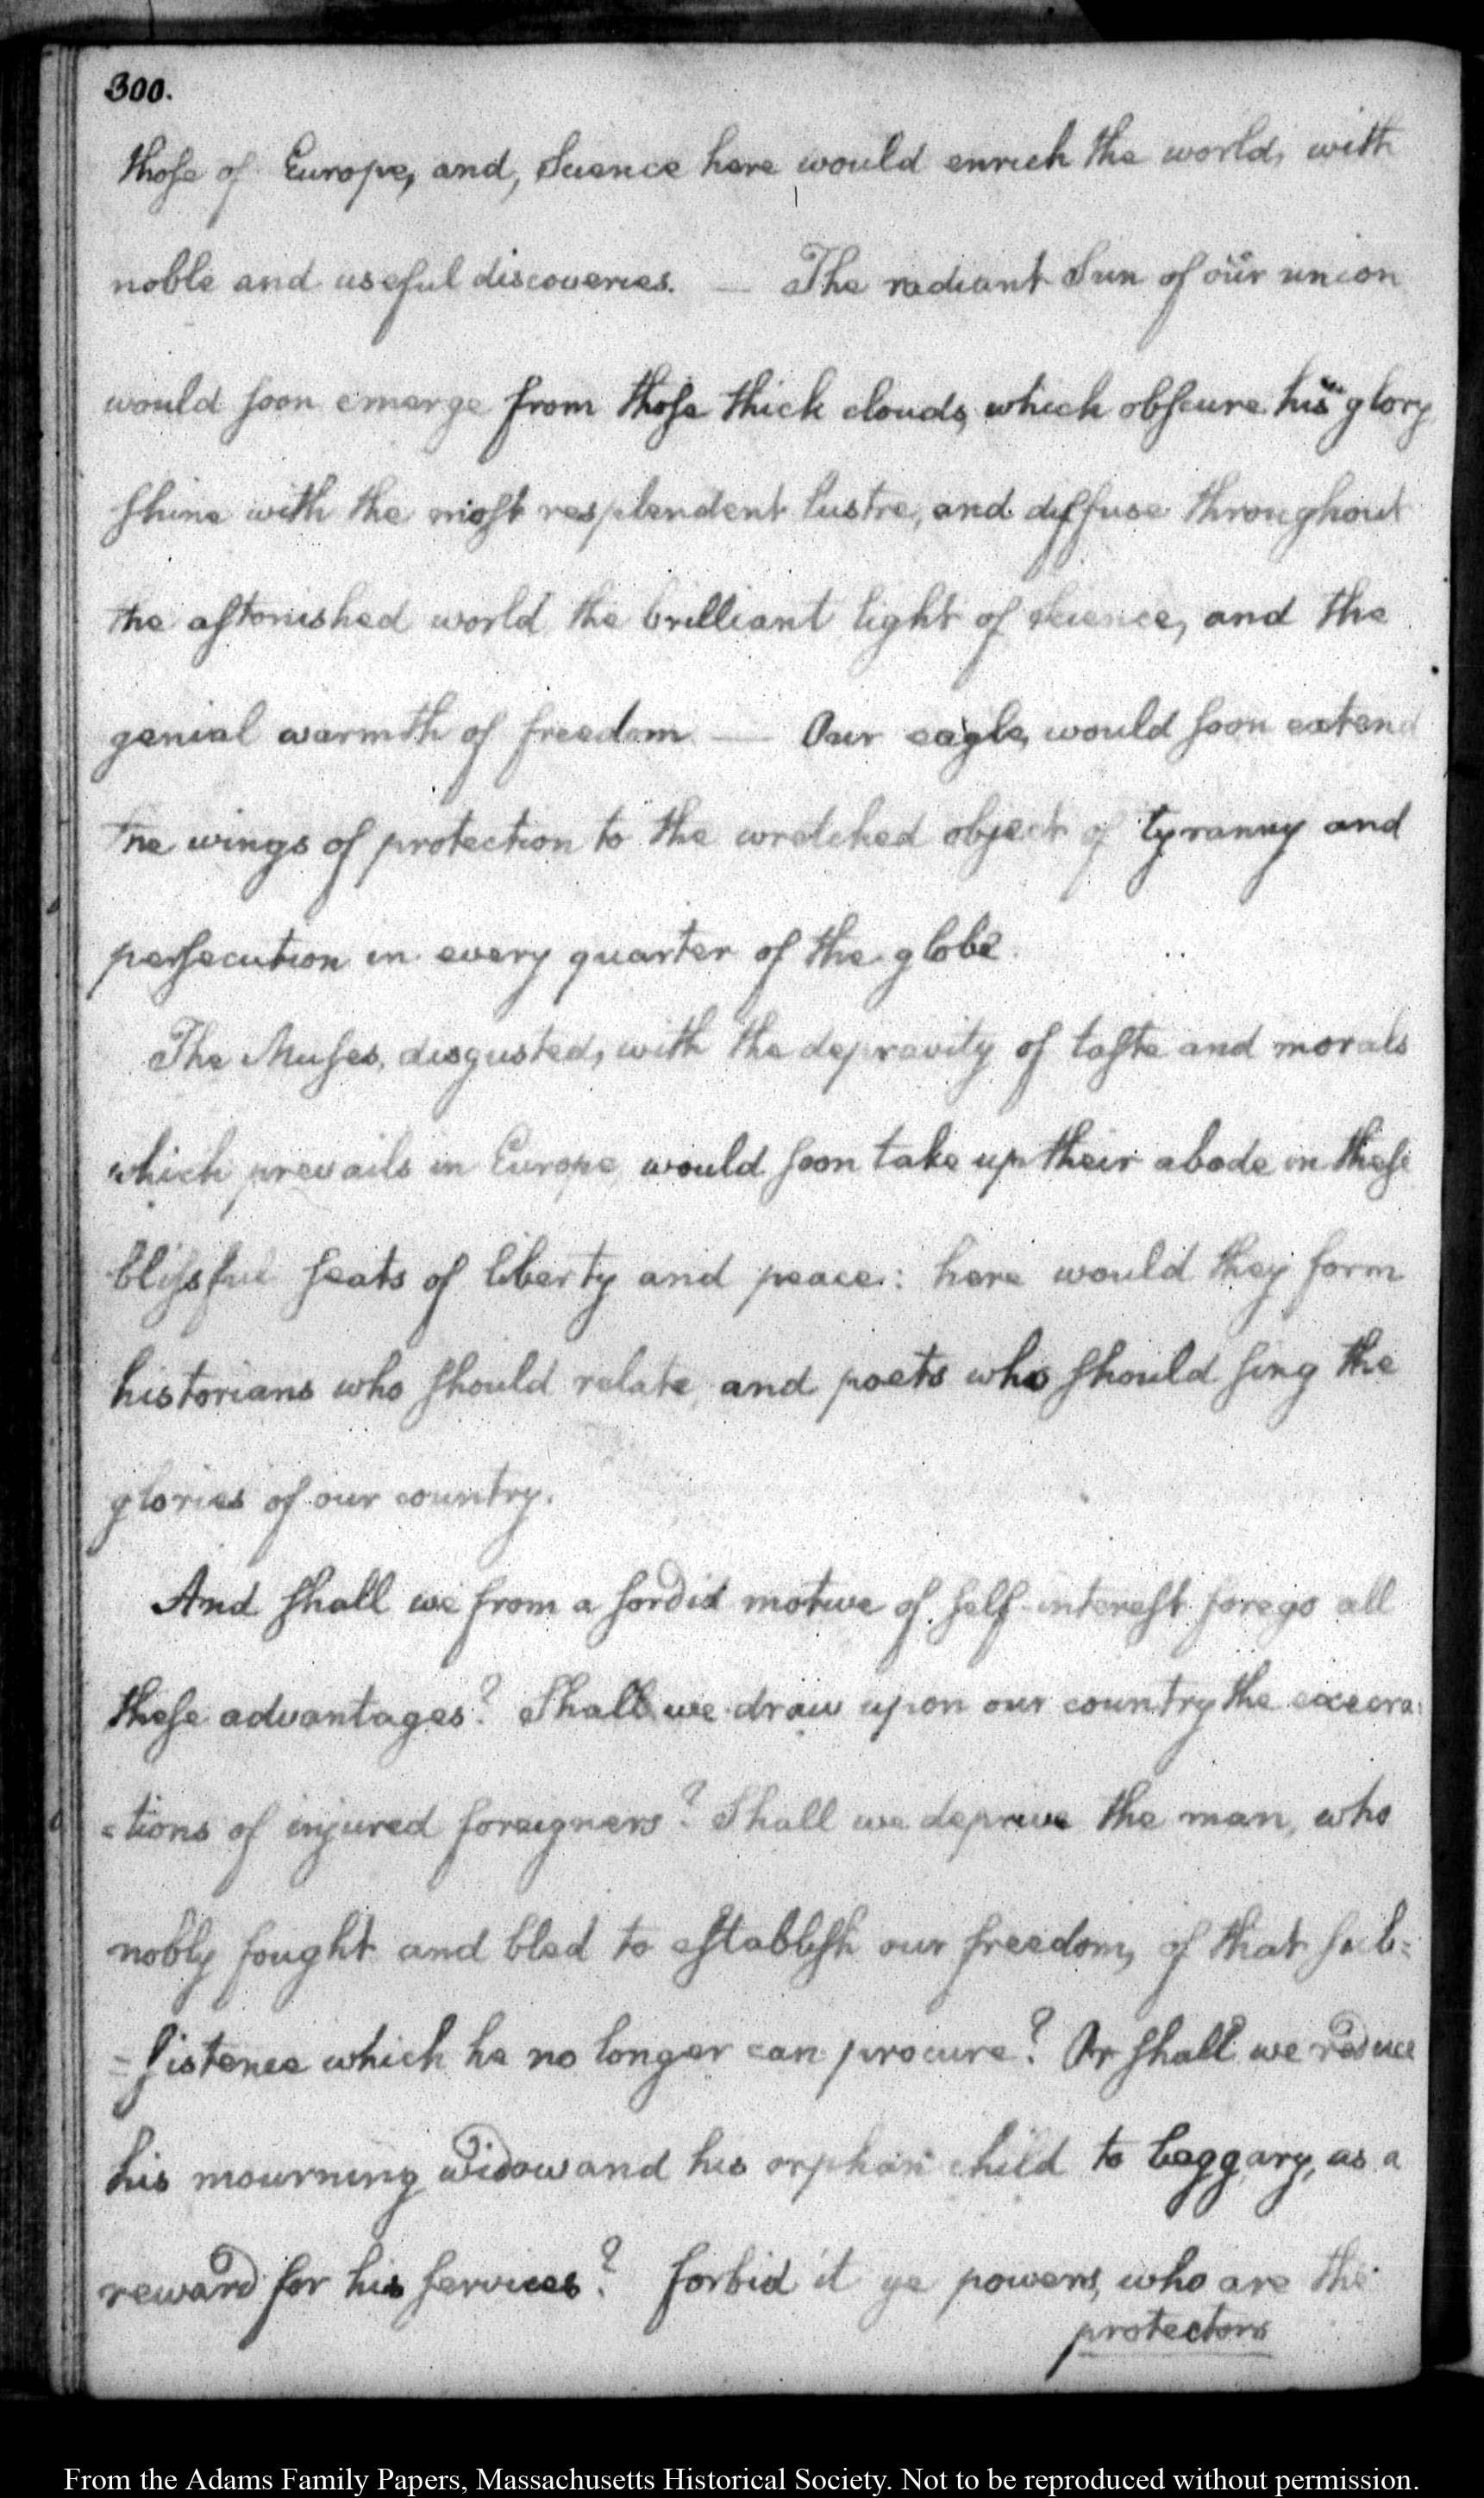 300.
those of Europe, and, Science here would enrich the world, with
noble and useful discoveries. — The radiant Sun of our union
would soon emerge from those thick clouds, which obscure his glory
shine with the most resplendent lustre, and diffuse throughout
the astonished world the brilliant light of science, and the
genial warmth of freedom — Our eagle, would soon extend
the wings of protection to the wretched object of tyranny and
persecution in every quarter of the globe.
The Muses, disgusted, with the depravity of taste and morals
which prevails in Europe, would soon take up their abode in these
blissful seats of liberty and peace: here would they form
historians who should relate, and poets who should sing the
glories of our country.
And shall we from a sordid motive of self-interest forego all
these advantages? Shall we draw upon our country the execra=
=tions of injured foreigners? Shall we deprive the man, who
nobly fought and bled to establish our freedom, of that sub=
=sistence which he no longer can procure? Or shall we reduce
his mourning widow and his orphan child to beggary, as a
reward for his services? forbid it ye powers, who are the
protectors
From the Adams Family Papers, Massachusetts Historical Society. Not to be reproduced without permission.